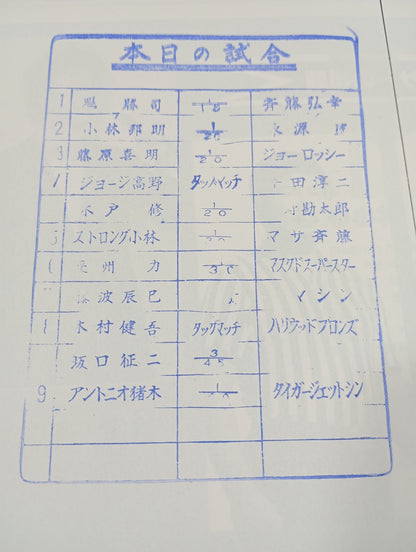 本日の試合
1 勝司 1/15 斉藤弘幸
2 小林邦明 1/20 源
3 藤原喜明 1/20 ジョーロッシー
ジョージ高野 タッグマッチ 田淳二
木戸 修 20 勘太郎
ストロング小林 マサ斉藤
州 力 30 マスクドスーパースター
波辰巳 マシン
8 木村健吾 タッグマッチ ハリウッドブロンズ
坂口征二 3/45
9 アントニオ猪木 1 タイガージェットシン